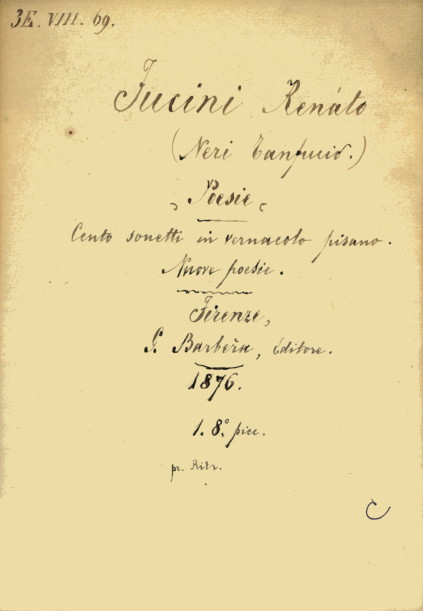 3E. VIII. 69.
Fucini Renáto
(Neri Tanfucio.)
Poesie
Cento sonetti in vernacolo pisano.
Nuove poesie.
Firenze,
G. Barbèra, Editore.
1876.
1. 8.° picc.
pr. Ritr.
C